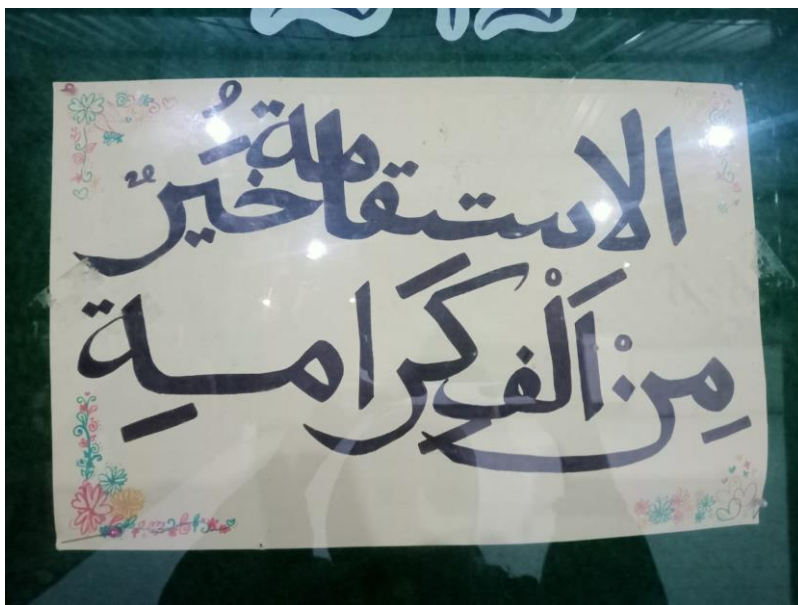 الاستقامة خَيْرٌ
مِنْ اَلْفِ كَرَامةِ